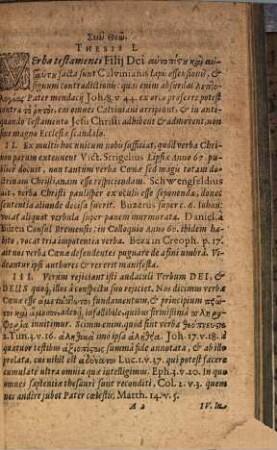 Σὺν Θεῷ.
THESIS I.
VErba testamenti Filij Dei
facta sunt Calvinianis lapis offensionis, &
signum contradictionis: quasi enim absurdas
Pater mendacij Joh. 8. v. 44. ex orco proferre potest
contra ea, omnes Calviniani arripiunt, & in anti-
quando Testamento Jesu Christi adhibent & admovent, non
sine magno Ecclesiæ scandalo.
II. Ex multis hoc unicum nobis sufficiat, quod verba Chri-
non parum extenuent. Vict. Strigelius Lipsiæ Anno 67. pu-
blicè docuit, non tantum verba Cœnæ sed magis totam do-
ctrinam Christianam esse respiciendam. Schwengfeldius
ait, verba Christi paulisper ex oculis esse seponenda, donec
sententia aliunde decisa fuerit. Buzerus super c. 6. Iohan:
vocat aliquot verbula super panem murmurata. Daniel. à
Büren Consul Bremensis; in Colloquio Anno 60. ibidem ha-
bito, vocat tria impotentia verba. Beza in Creoph. p. 17.
ait nos verba Cœnæ defendentes pugnare de asini umbrâ. Vi-
deantur ipsi authores & res erit manifesta.
III. Verum rejiciant isti audaculi Verbum DEI, &
DEUS quoq́; illos à conspectu suo rejiciet. Nos dicimus verba
Cœnæ esse fundamentum, & principium
infallibile, quibus firmissima
innitimur. Scimus enim, quod sint verba
2. Tim. 3. v. 16. ἀληθινὰ imò ipsa ἀλήθεια. Joh. 17. v. 18. à
quatuor testibus summâ fide annotata, & ab illo
prolata, cui nihil est Luc. 1. v. 37. qui potest facere
cumulatè ultra omnia quæ intelligimus. Eph. 3. v. 20. In quo
omnes sapientiæ thesauri sunt reconditi, Col. 2. v. 3. quem
nos audire jubet Pater cœlestis, Matth. 14. v. 5.
A 2